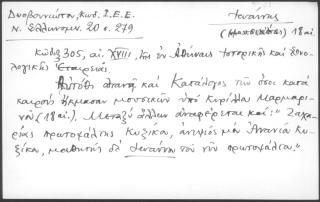 Δυοβουνιώτου, Κωδ. Ι.Ε.Ε.
Ν. Ἑλληνομν. 20 σ. 279
Ἰωάννης
18 αἰ.
Κῶδιξ 305, αἰ. XVIII, τῆς ἐν Ἀθήναις Ἱστορικῆς καὶ Ἐθνο-
λογικῆς Ἑταιρείας
Αὐτόθι ἀπαντᾷ καὶ Κατάλογος τῶν ὅσοι κατὰ
καιροὺς ἤκμασαν μουσικῶν ὑπὸ Κυρίλλου Μαρμαρι-
νοῦ (18 αἰ.). Μεταξὺ ἄλλων ἀναφέρεται καὶ: "Ζαχα-
ρίας πρωτοψάλτης Κυζίκου, ἀνεψιὸς μὲν Ἀνανία Κυ-
ζίκου, μαθητὴς δὲ Ἰωάννου τοῦ νῦν πρωτοψάλτου."